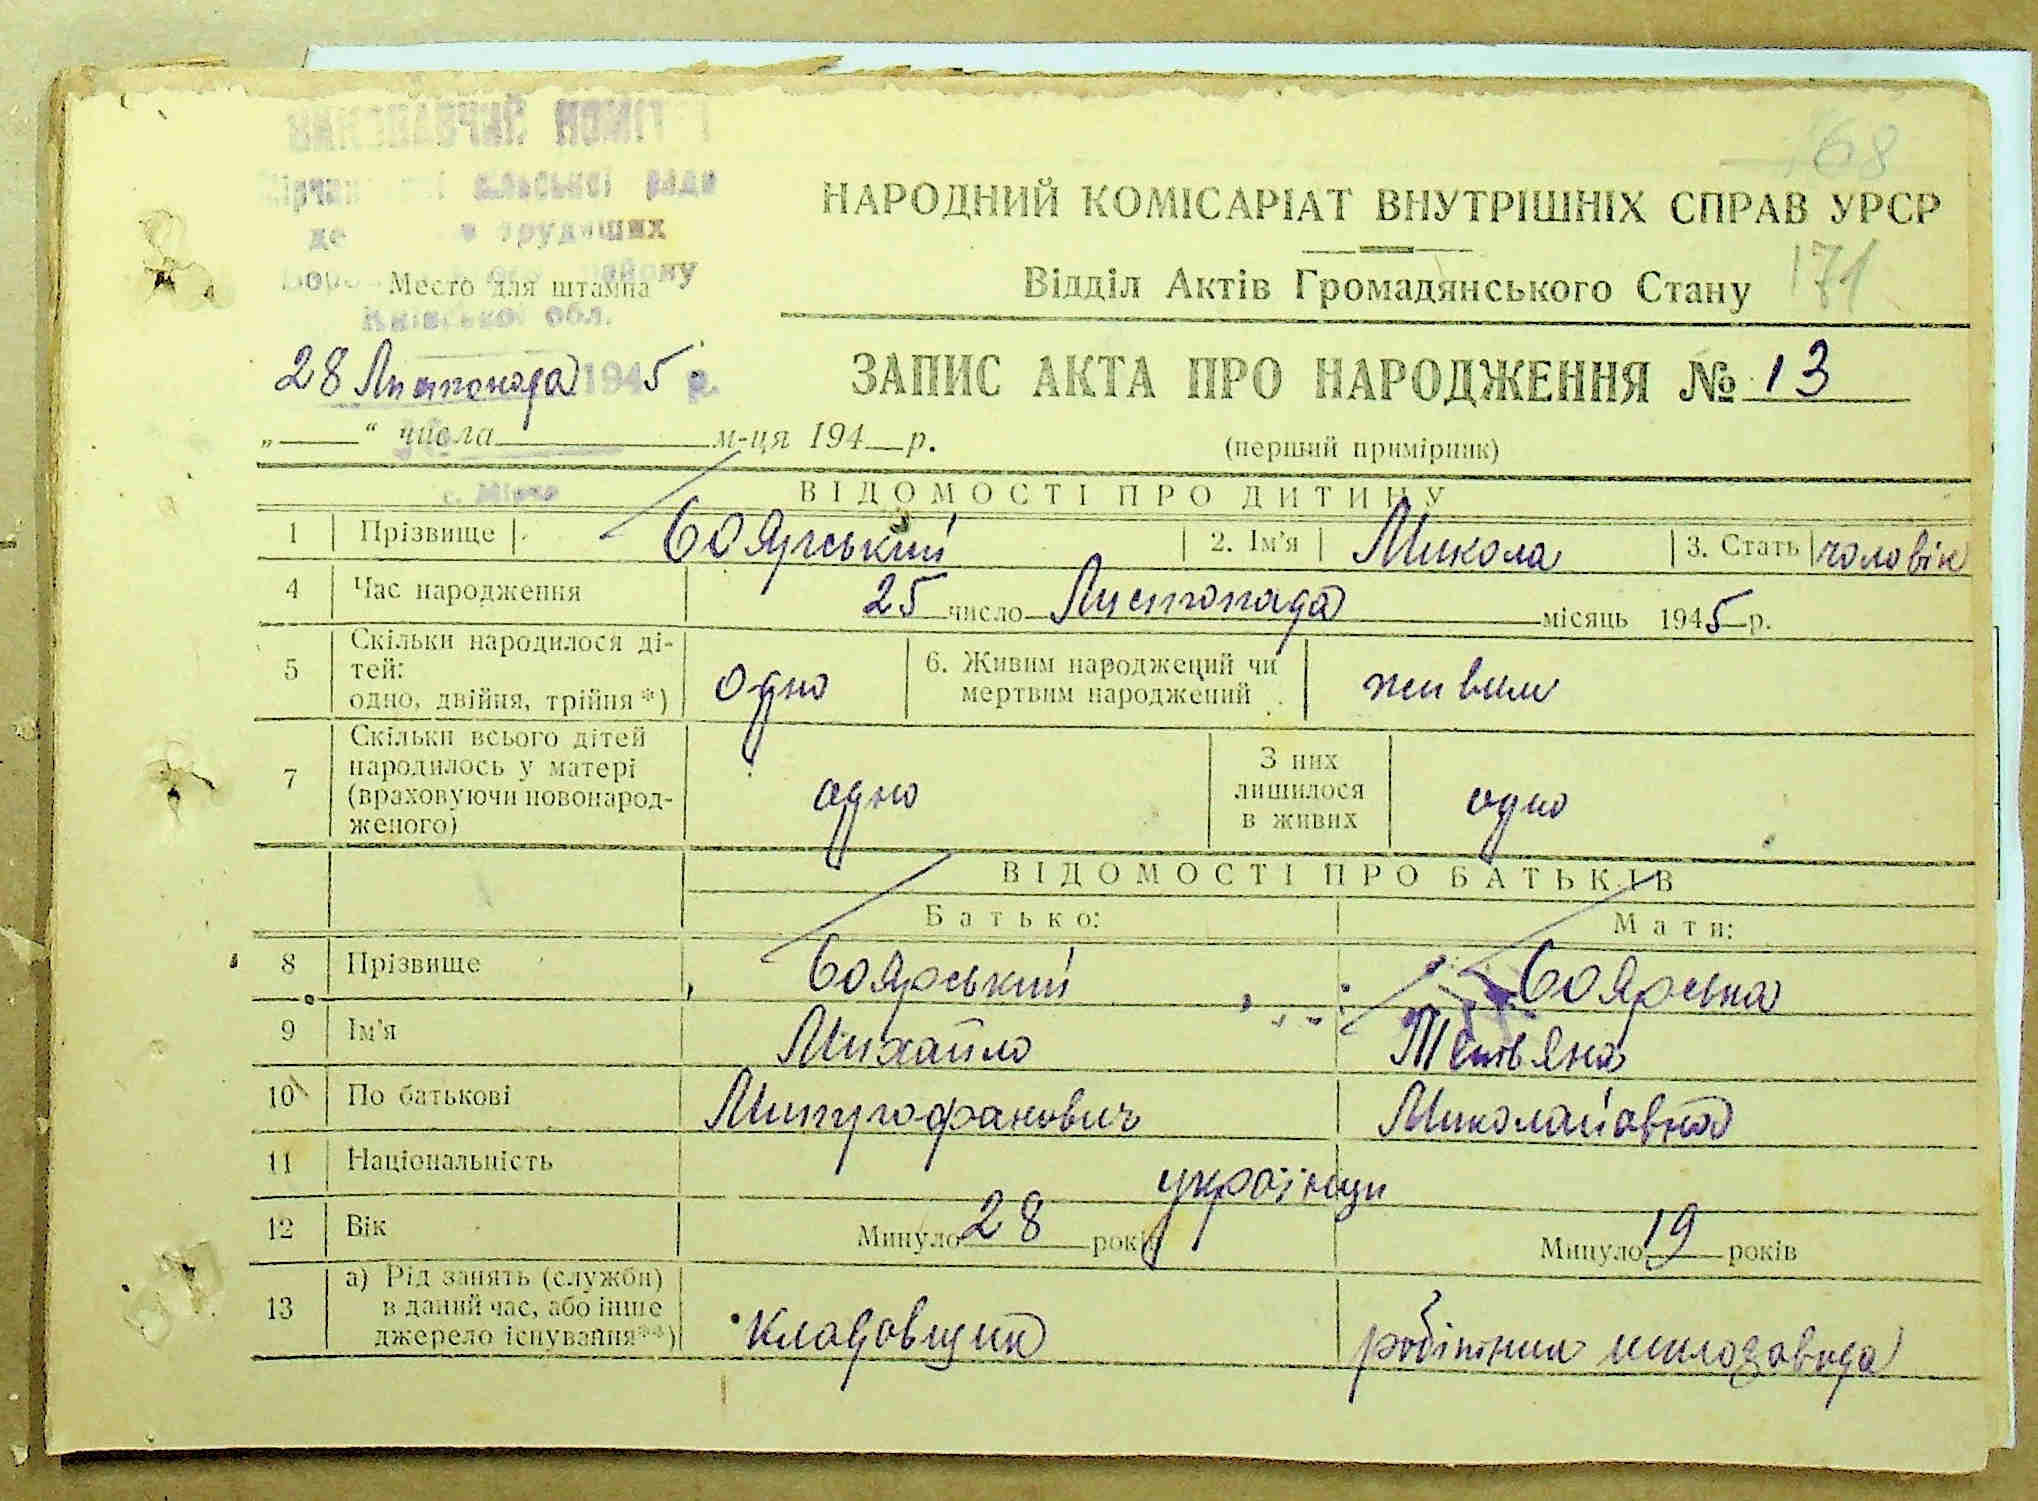 68
НАРОДНИЙ КОМІСАРІАТ ВНУТРІШНІХ СПРАВ УРСР
Відділ Актів Громадянського Стану
171
трудящих
району
Место для штампа
Київської обл.
28 Листопада 1945 р.
ЗАПИС АКТА ПРО НАРОДЖЕННЯ № 13
„ “ числа м-ця 194 р.
(перший примірник)
ВІДОМОСТІ ПРО ДИТИНУ
1 Прізвище Боярський 2. Ім'я Микола 3. Стать чоловік
4 Час народження 25 число Листопада місяць 1945 р.
5 Скільки народилося ді-
тей:
одно, двійня, трійня *) одно
6. Живим народжений чи
мертвим народжений живим
7 Скільки всього дітей
народилось у матері
(враховуючи новонарод-
женого) одно
З них
лишилося
в живих одно
ВІДОМОСТІ ПРО БАТЬКІВ
Батько: Мати:
8 Прізвище Боярський Боярська
9 Ім'я Михайло Тетьяна
10 По батькові Митрофанович Миколайовна
11 Національність українци
12 Вік Минуло 28 років Минуло 19 років
13 а) Рід занять (служби)
в даний час, або інше
джерело існування **) Кладовщик робітник